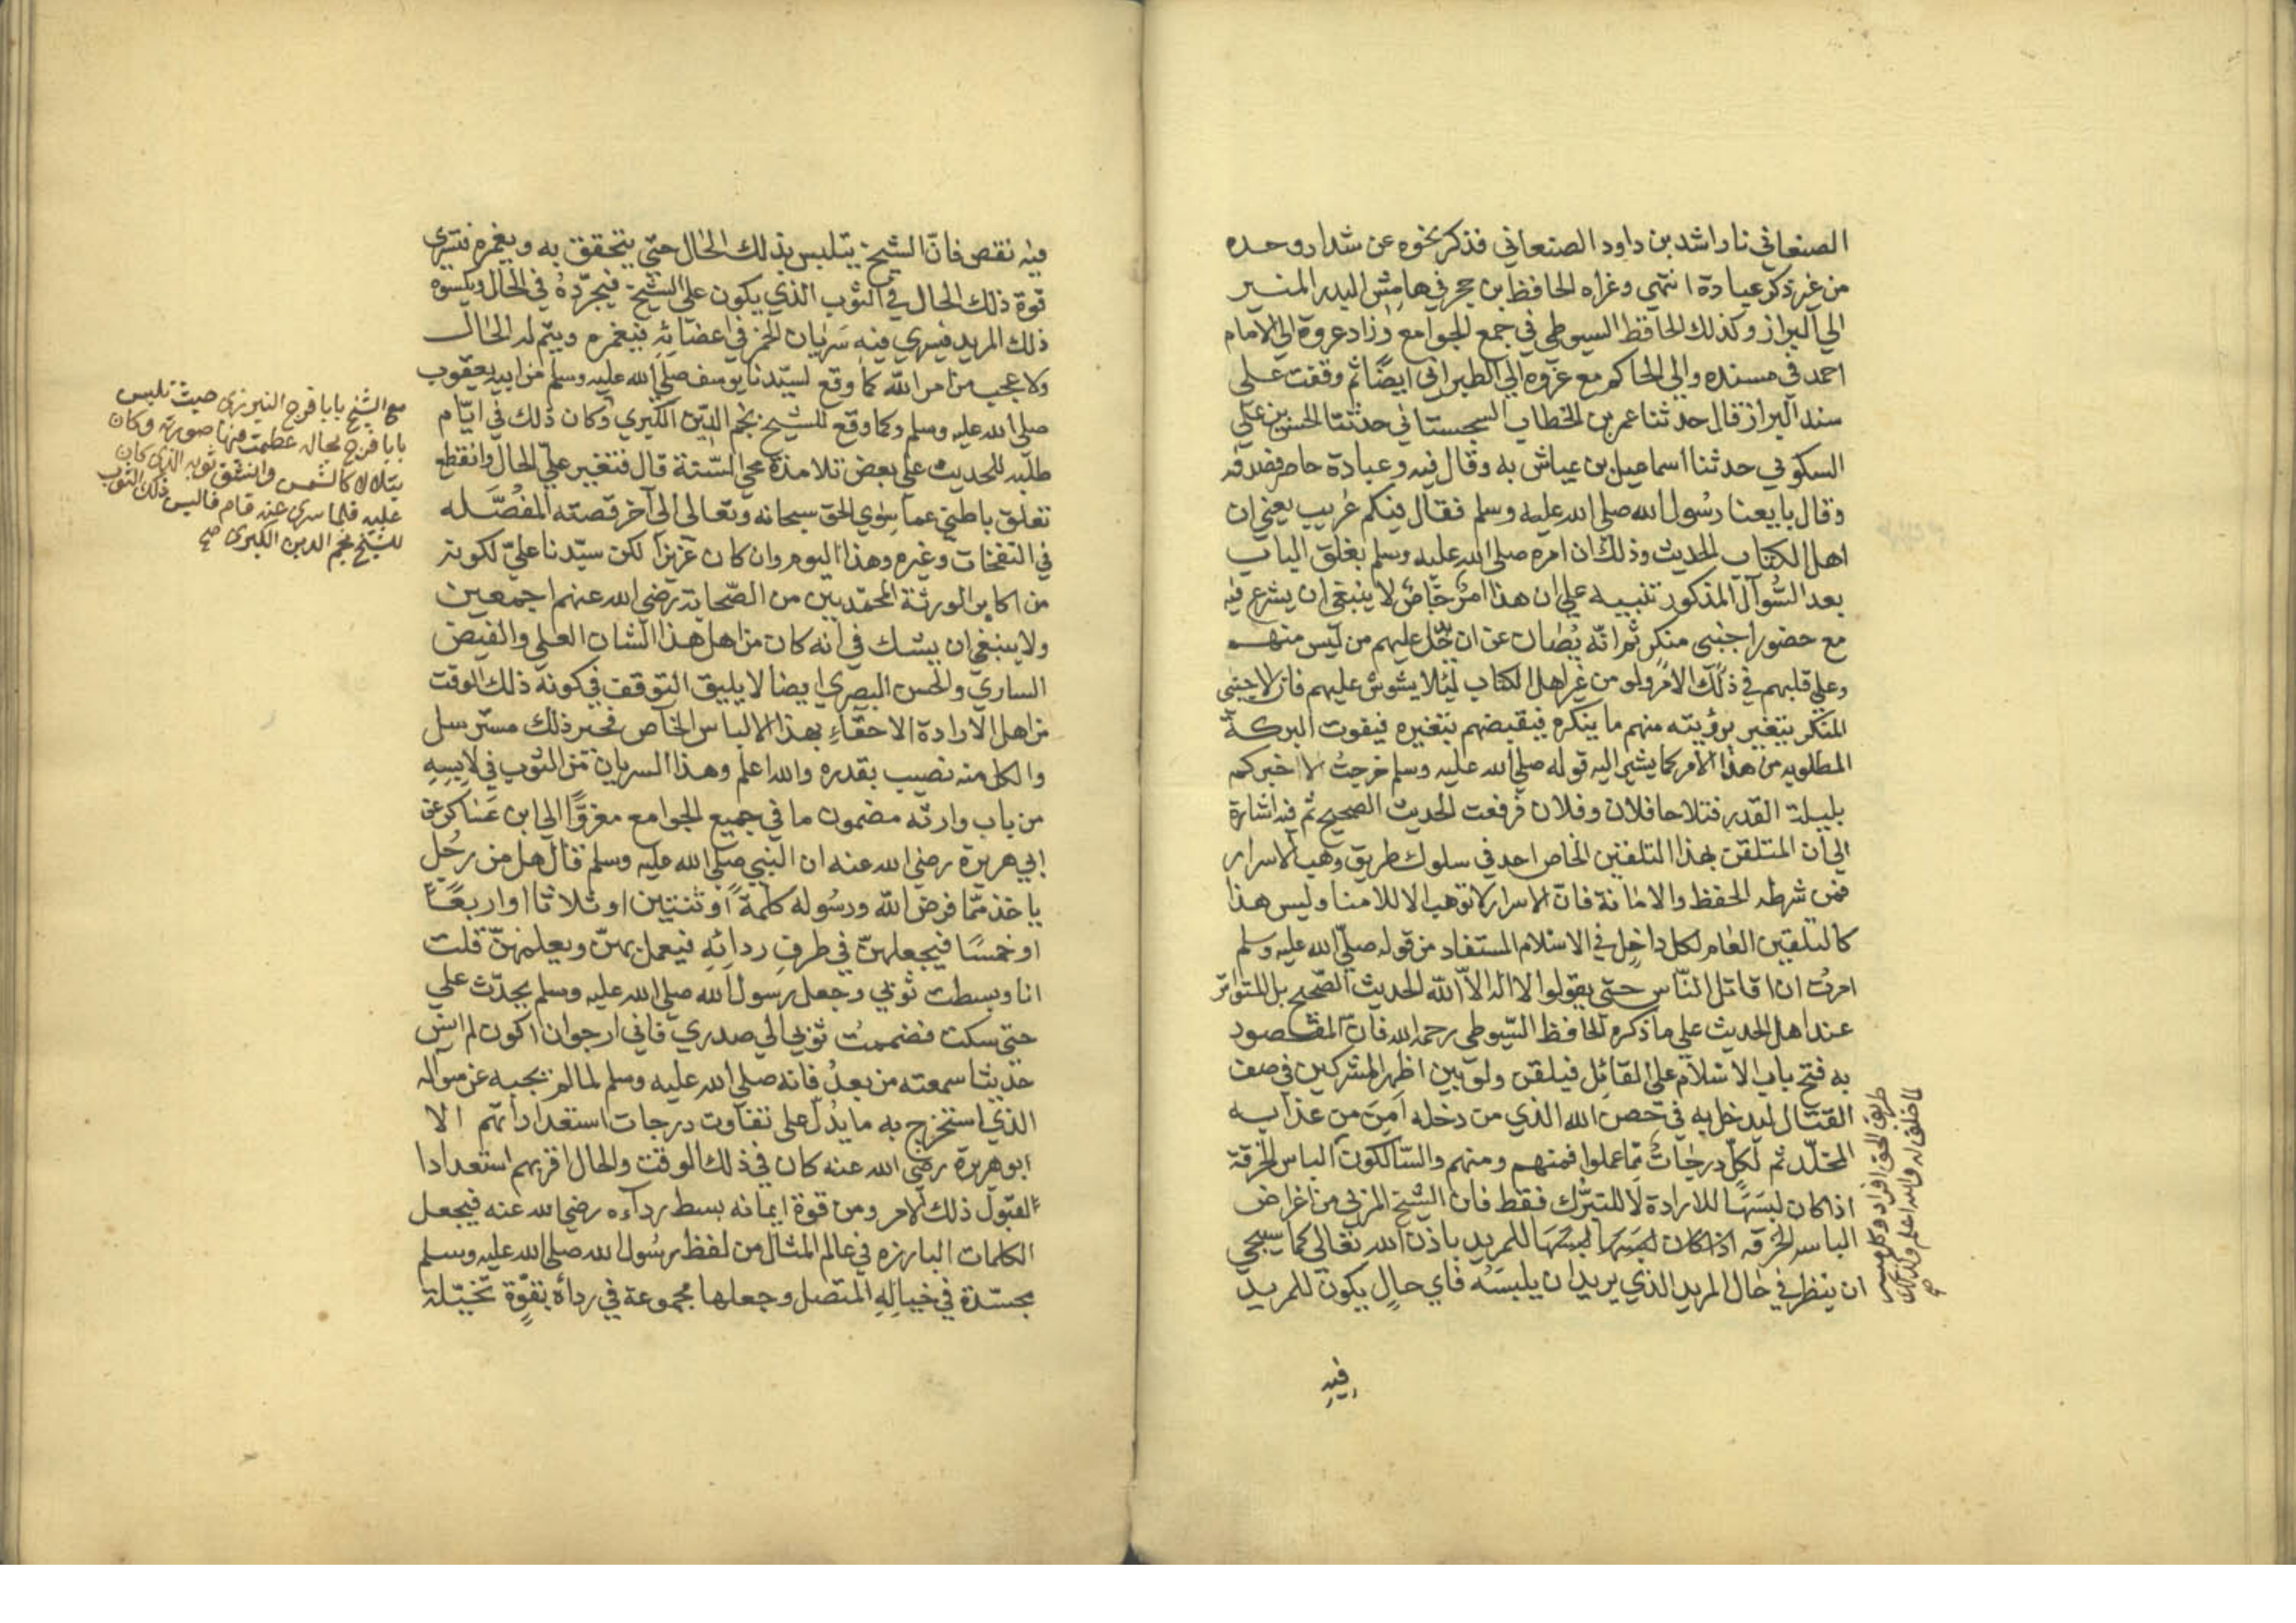 الصنعاني نا راشد بن داود الصنعاني فذكر نحوه عن شداد وحده
من غير ذكر عبادة انتهى وعزاه الحافظ بن حجر في هامش البدر المنير
الي البزاز وكذلك الحافظ السيوطي في جمع الجوامع وزاد عزوه الي الامام
احمد في مسنده والي الحاكم مع عزوه الي الطبراني ايضًا ثم وقفت علي
سند البزاز قال حدثنا عمر بن الخطاب السجستاني حدثنا الحسن بن علي
السكوني حدثنا اسماعيل بن عياش به وقال فيه وعبادة حاضر فصدقه
وقال بايعنا رسُول الله صلي الله عليه وسلم فقال فيكم غريب يعني ان
اهل الكتاب الحديث وذلك ان امره صلي الله عليه وسلم بغلق الباب
بعد السُّوآل المذكور تنبيه علي ان هذا امرٌ خاصٌ لا ينبغي ان يشرع فيه
مع حضور اجنبي منكر ثم انّه يُصَان عن ان يدخل عليهم من ليس منهم
وعلي قلبهم في ذلك الامر ولو من غير اهل الكتاب ليئلا يشوش عليهم فان الاجنبي
المنكر يتغير برؤيته منهم ما ينكره فيقبضهم بتغيره فيفوت البركة
المطلوبه من هذا الامر كما يشير اليه قوله صلي الله عليه وسلم خرجتُ لاخبركم
بليلة القدر فتلاحا فلان وفلان فرفعت الحديث الصحيح ثم فيه اشارة
الي ان المتلقن بهذا التلقين الخاص احد في سلوك طريق وهب الاسرار
فمن شرطه الحفظ والامانة فان الاسرار لا توهب الا للامنا وليس هذا
كالتلقين العام لكل داخل في الاسلام المستفاد من قوله صلي الله عليه وسلم
امرت ان اقاتل النّاس حتي يقولوا لا اله الاّ الله الحديث الصّحيح بل المتواتر
عند اهل الحديث علي ما ذكره الحافظ السّيوطي رحمه الله فان المقصود
به فتح باب الاسلام علي القائل فيلقن ولو بين اظهر المشركين في صف
القتال ليدخل به في حصن الله الذي من دخله اَمِنَ من عذابه
المخلّد ثم لكلٍ درجاتٌ ممّا عملوا فمنهم ومنهم والسّالكون الباس الخرقة
اذا كان لبسَهَا للارادة لا للتبّرك فقط فان الشيخ المربي من اغراض
الباس الخرقه اذا كان لبسَهَا للمريد باذن الله تعالي كما سيجي
ان ينظر في حَال المريد الذي يريد ان يلبسَهُ فاي حالٍ يكون للمريد
طريق الحق افراد وكل ميسر
لما خلق له والله اعلم
فيه
فيه نقص فانّ الشيخ يتلبس بذلك الحال حتّي يتحقق به ويغمره فتسري
قوة ذلك الحال في الثوب الذي يكون علي الشيخ فيجرّدهُ في الحال ويكسوه
ذلك المريد فيسري فيه سَريان الخمر في اعضائه فيغمره ويتم له الحال
ولا عجب من امر الله كما وقع لسيّدنا يوسف صلي الله عليه وسلم من ابيه يعقوب
صلي الله عليه وسلم وكما وقع للشيخ نجم الدّين الكُبري وكان ذلك في ايّام
طلبه للحديث علي بعض تلامذة محي السّنة قال فتغير عليّ الحال وانقطع
تعلق باطني عما سِوي الحق سبحانه وتعالي الي آخر قصته المفصّله
في النفحات وغيره وهذا اليوم وان كان عزيزًا لكن سيّدنا عليّ لكونه
من اكابر الورثة المحمّديين من الصّحابة رضي الله عنهم اجمعين
ولا ينبغي ان يشك في انه كان من اهل هذا الشان العلي والفيض
الساري والحسن البصري ايضا لا يليق التوقف في كونه ذلك الوقت
من اهل الارادة الاحقّاءِ بهذا الالباس الخاص فخبر ذلك مسترسل
والكل منه نصيب بقدره والله اعلم وهذا السريان من الثوب في لابسِهِ
من باب وارثه مضمون ما في جميع الجوامع معزوًّا الي ابن عسَاكر عن
ابي هريرة رضي الله عنه ان النبي صلي الله عليه وسلم قال هل من رجُلٍ
ياخذ ممّا فرض الله ورسُوله كلمةً او ثنتين او ثلاثا او اربعًا
او خمسًا فيجعلهنّ في طرف ردائِهِ فيعمل بهنّ ويعلمهنّ قلت
انا وبسطت ثوبي وجعل رسول الله صلي الله عليه وسلم يحدّث علي
حتي سكت فضممتُ ثوبي الي صدري فاني ارجو ان اكون لم انس
حديثا سمعته من بعدُ فانه صلي الله عليه وسلم لما لم يجبه عن سوآله
الذي استخرج به ما يدُلّ علي تفاوت درجات استعداداتهم الا
ابو هريرة رضي الله عنه كان في ذلك الوقت والحال اقربهم استعدادا
لقبُول ذلك الامر ومن قوة ايمانه بسط ردآءه رضي الله عنه فيجعل
الكلمات البارزه في عالم المثال من لفظ رسُول الله صلي الله عليه وسلم
مجسّدة في خيالِهِ المتصل وجعلها مجموعة في ردآه بقوّةٍ تخيّلة
مع الشيخ بابا فرج التبريزي حيث تلبس
بابا فرج بحاله عظمت فيها صورته وكان
يتلالا كالشمس وانشق ثوبه الذي كان
عليه فلما سري عنه قام فالبس ذلك الثوب
للشيخ نجم الدين الكبري صح